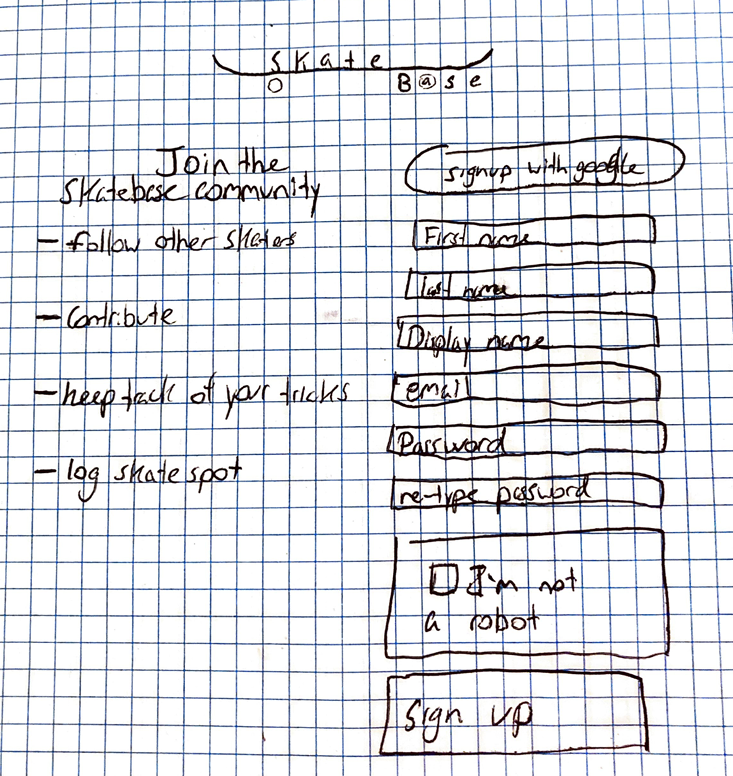 Skate
B@se
Join the
Skatebase community
- follow other skaters
- Contribute
- keep tack of your tricks
- log skate spot
signup with google
First name
last name
Display name
email
Password
re-type password
I'm not
a robot
Sign up